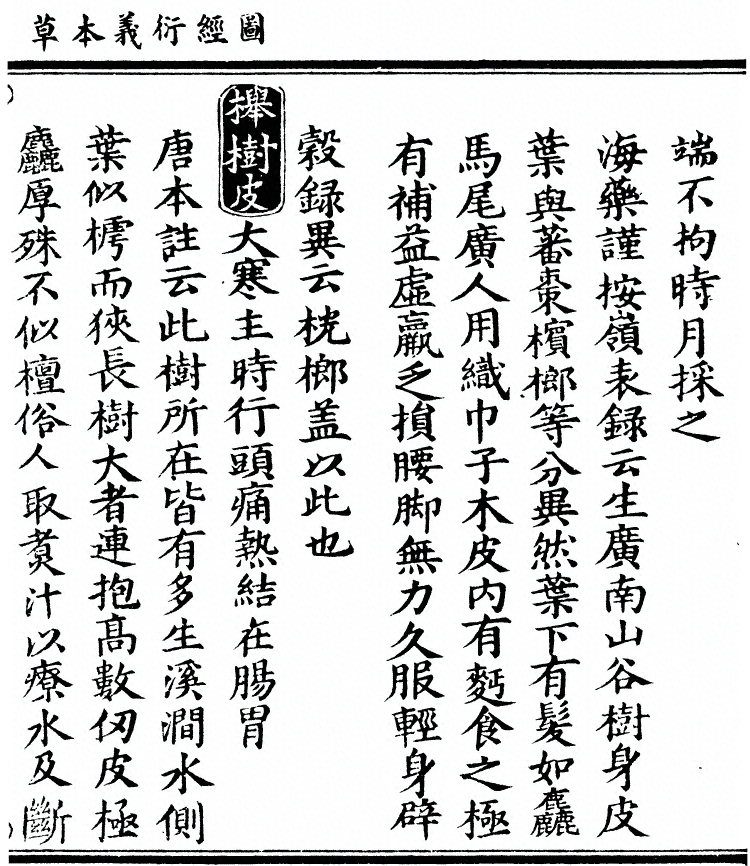 圖經衍義本草
端不拘時月採之
海藥謹按嶺表録云生廣南山谷樹身皮
葉與蕃棗檳榔等分異然葉下有髮如麤
馬尾廣人用織巾子木皮内有麪食之極
有補益虛羸乏損腰脚無力久服輕身辟
穀録異云桄榔盖以此也
櫸樹皮大寒主時行頭痛熱結在腸胃
唐本註云此樹所在皆有多生溪澗水側
葉似樗而狹長樹大者連抱髙數仞皮極
麤厚殊不似檀俗人取煑汁以療水及斷